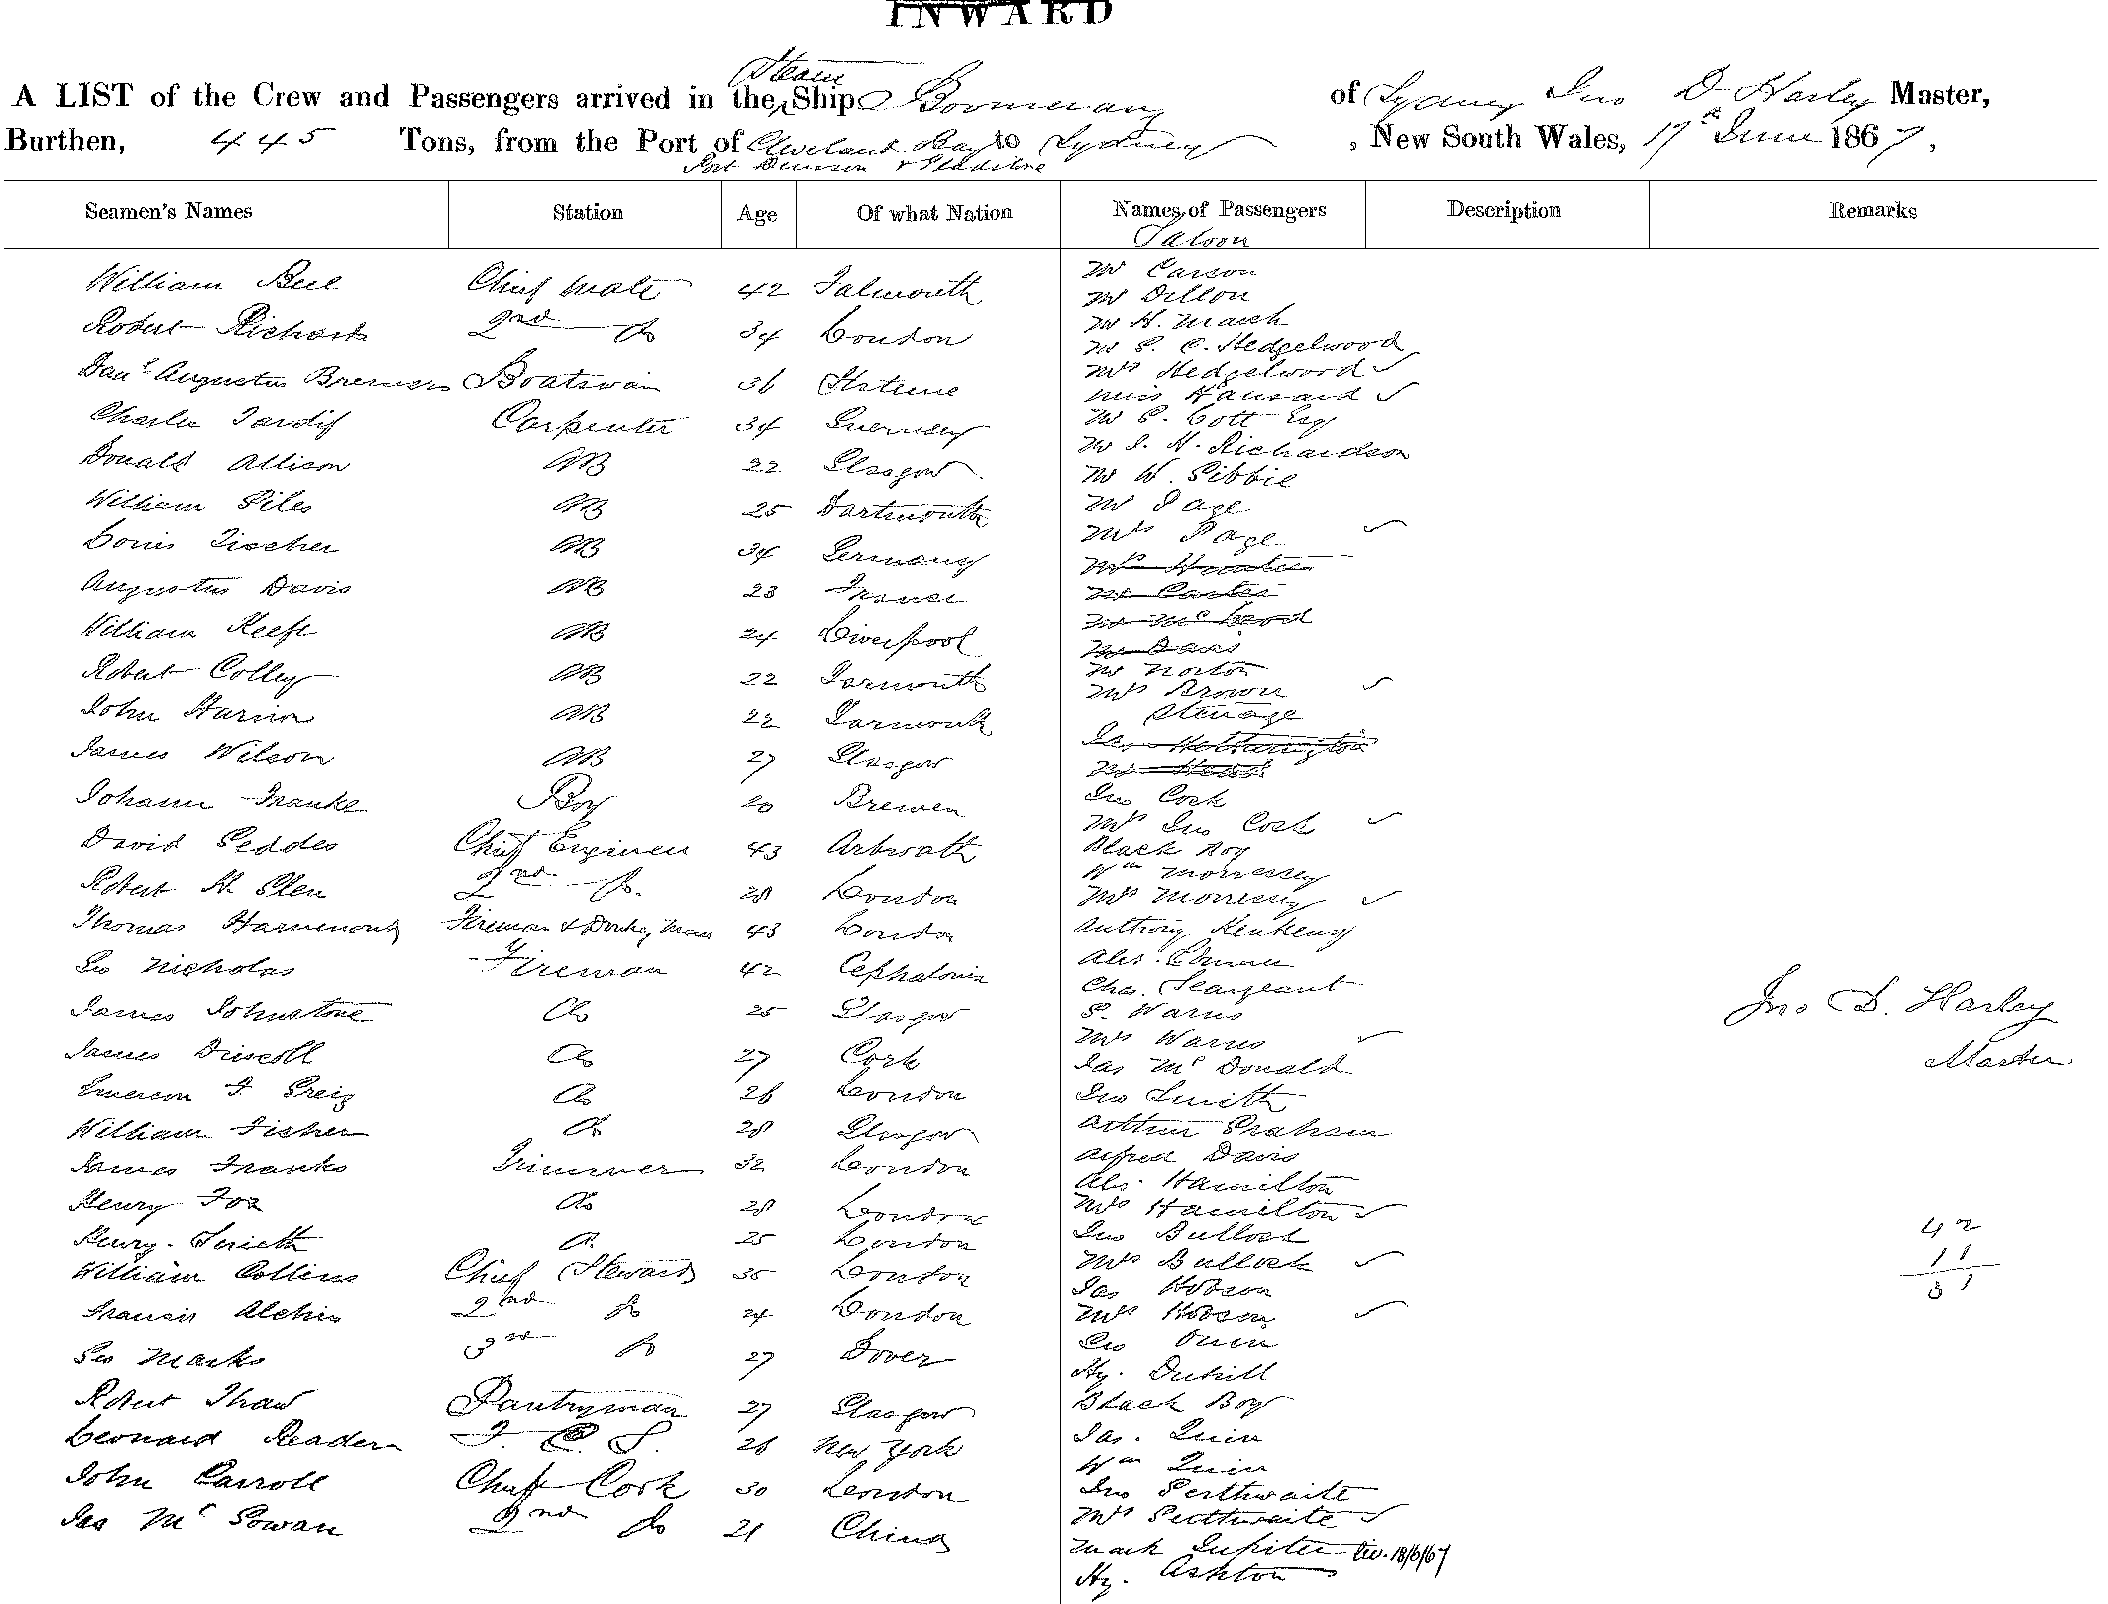 INWARD
A LIST of the Crew and Passengers arrived in the Steam Ship Boomerang of Sydney Jno D Harley Master,
Burthen, 445 Tons, from the Port of Cleveland Bay to Sydney, New South Wales, 17th June 1867.
Port Denison & Gladstone
Seamen's Names Station Age Of what Nation Names of Passengers Description Remarks
Saloon
William Bell Chief Mate 42 Falmouth
Robert Richards 2nd Do 34 London
Danl Augustus Boatswain 36
Charles Tardif Carpenter 34 Guernsey
Donald Allison AB 22 Glasgow
William Giles AB 25 Dartmouth
Louis Fischer AB 34 Germany
Augustus Davis AB 23 France
William Keefe AB 24 Liverpool
Robert Colley AB 22 Yarmouth
John AB 22 Yarmouth
James Wilson AB 27 Glasgow
Johann Franke Boy 20 Bremen
David Geddes Chief Engineer 43 Arbroath
Robert H. Glen 2nd Do. 28 London
Thomas Hammond Fireman & Donkey Man 43 London
Geo Nicholas Fireman 42 Cephalonia
James Johnstone Do 25 Glasgow
James Driscoll Do 27 Cork
Emerson F. Greig Do 26 London
William Fisher Do 28 Glasgow
James Franks Trimmer 32 London
Henry Fox Do 28 London
Henry Smith Do 25 London
William Collins Chief Steward 35 London
Francis Alchin 2nd Do 24 London
Geo Marks 3rd Do 27 Dover
Robert Thaw Pantryman 27 Glasgow
Leonard Readern F. C. S. 26 New York
John Carroll Chief Cook 30 London
Jas McGowan 2nd Do 21 China
Mr Carson
Mr Dillon
Mr H. March
Mr G. C. Hedgelwood
Mrs Hedgelwood
Miss Hansard
Mr G. Cott Esq
Mr J. H. Richardson
Mr W. Gibbie
Mr Page
Mrs Page
Mrs Hunter
Mr Carter
Mr McLeod
Mr Davis
Mr Norton
Mrs Brown
Steerage
Jas Hetherington
Mr Head
Jno Cook
Mrs Jno Cook
Black Boy
Wm Morressey
Mrs Morressey
Anthony
Alex.
Chas. Seargeant
G. Warns
Mrs Warns
Jas McDonald
Jno Smith
Arthur Graham
Alfred Davis
Alex. Hamilton
Mrs Hamilton
Jno Bullock
Mrs Bullock
Jas Hobson
Mrs Hobson
Geo Owen
Hy. Duhill
Black Boy
Jas. Quin
Wm Quin
Jno Perthwaite
Mrs Perthwaite
Mark Jupiter Div. 18/6/67
Hy. Ashton
Jno D. Harley
Master
42
11
51